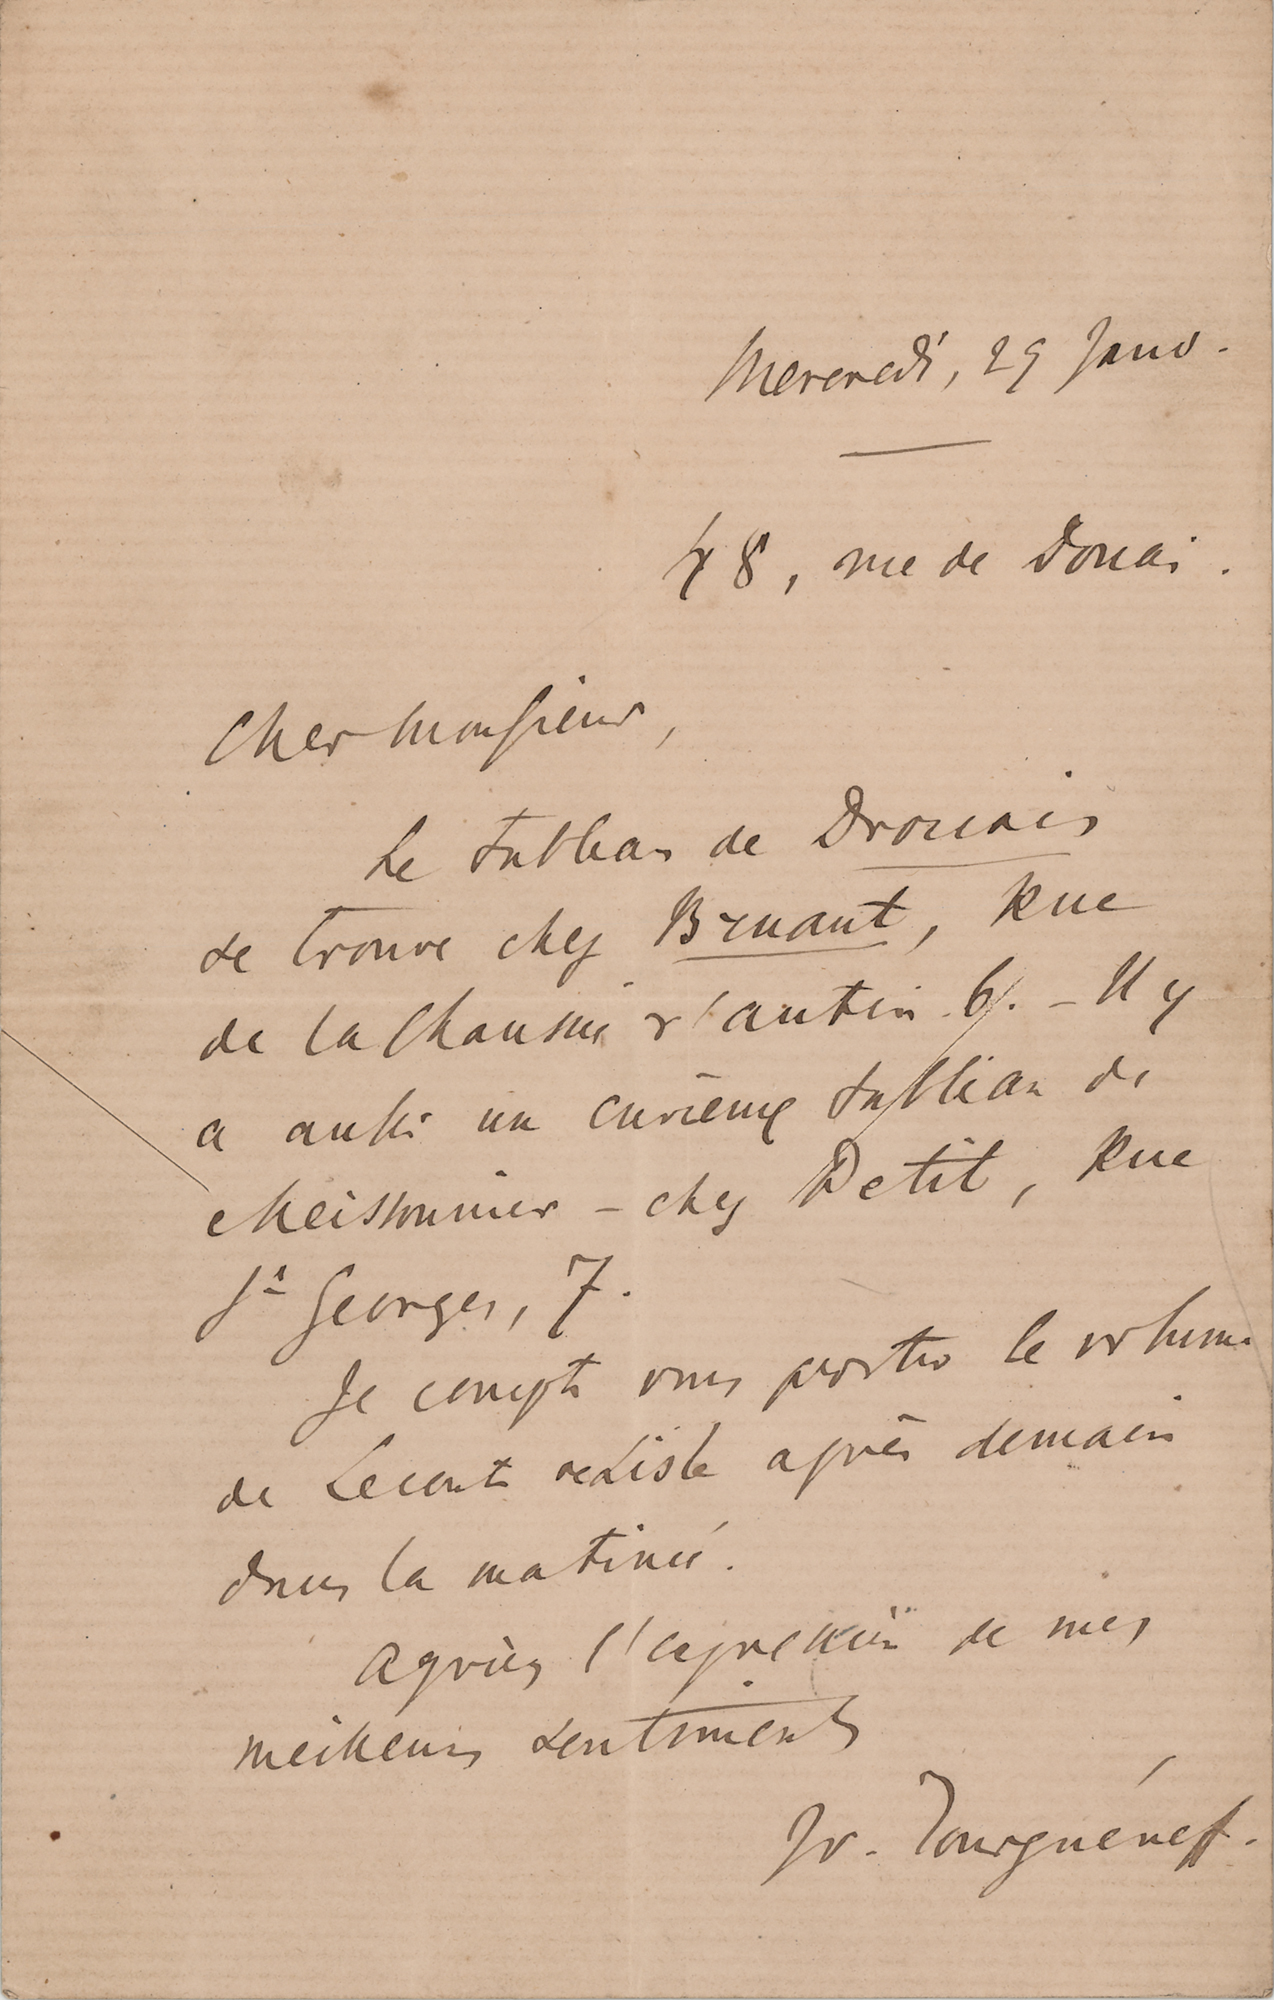 Mercredi, 29 Janv.
48, rue de Douai.
Cher Monsieur,
Le tableau de Drouais
se trouve chez Bruant, Rue
de la Chaussée d'antin 6. – Il y
a aussi un curieux tableau de
Meissonnier – chez Petit, Rue
St Georges, 7.
Je compte vous porter le volume
de Leconte de Lisle après demain
dans la matinée.
Agréez l'expression de mes
meilleurs sentiments
Iv. Tourguéneff.